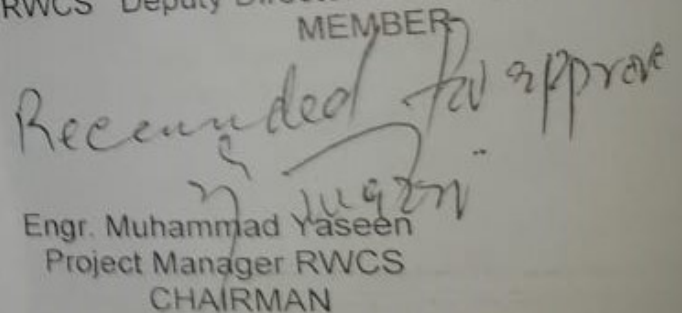 RWCS Deputy Director
MEMBER
Recommended for approve
Engr. Muhammad Yaseen
Project Manager RWCS
CHAIRMAN